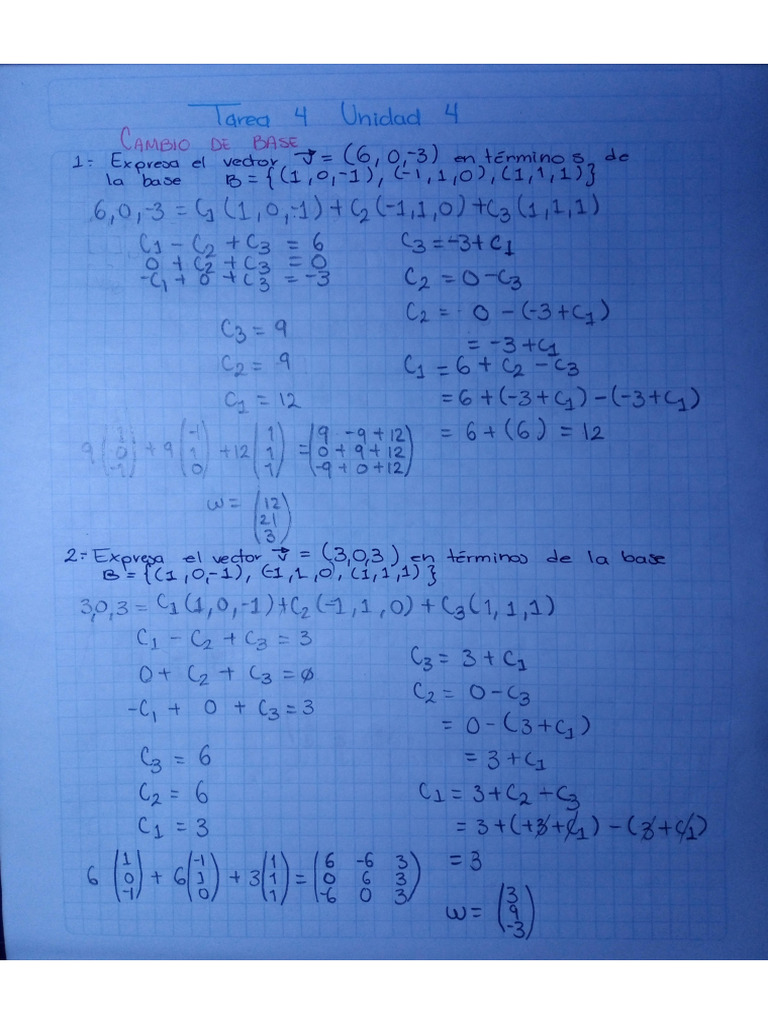 Tarea 4 Unidad 4
CAMBIO DE BASE
1= Expresa el vector v⃗ = (6,0,-3) en términos de
la base B = {(1,0,-1), (-1,1,0), (1,1,1)}
6,0,-3 = C₁(1,0,-1)+C₂(-1,1,0)+C₃(1,1,1)
C₁ - C₂ + C₃ = 6
0 + C₂ + C₃ = 0
-C₁ + 0 + C₃ = -3
C₃ = 9
C₂ = 9
C₁ = 12
C₃ = -3 + C₁
C₂ = 0 - C₃
C₂ = 0 - (-3 + C₁)
= -3 + C₁
C₁ = 6 + C₂ - C₃
= 6 + (-3 + C₁) - (-3 + C₁)
= 6 + (6) = 12
9 (1 0 -1) + 9 (-1 1 0) + 12 (1 1 1) = (9 -9 +12
0 + 9 + 12
-9 + 0 + 12)
w = (12
21
3)
2= Expresa el vector v⃗ = (3,0,3) en términos de la base
B = {(1,0,-1), (-1,1,0, (1,1,1)}
3,0,3 = C₁(1,0,-1)+C₂(-1,1,0) + C₃(1,1,1)
C₁ - C₂ + C₃ = 3
0 + C₂ + C₃ = ∅
-C₁ + 0 + C₃ = 3
C₃ = 6
C₂ = 6
C₁ = 3
C₃ = 3 + C₁
C₂ = 0 - C₃
= 0 - (3 + C₁)
= 3 + C₁
C₁ = 3 + C₂ - C₃
= 3 + (+3 + C₁) - (3 + C₁)
= 3
6 (1 0 -1) + 6 (-1 1 0) + 3 (1 1 1) = (6 -6 3
0 6 3
-6 0 3)
w = (3
9
-3)